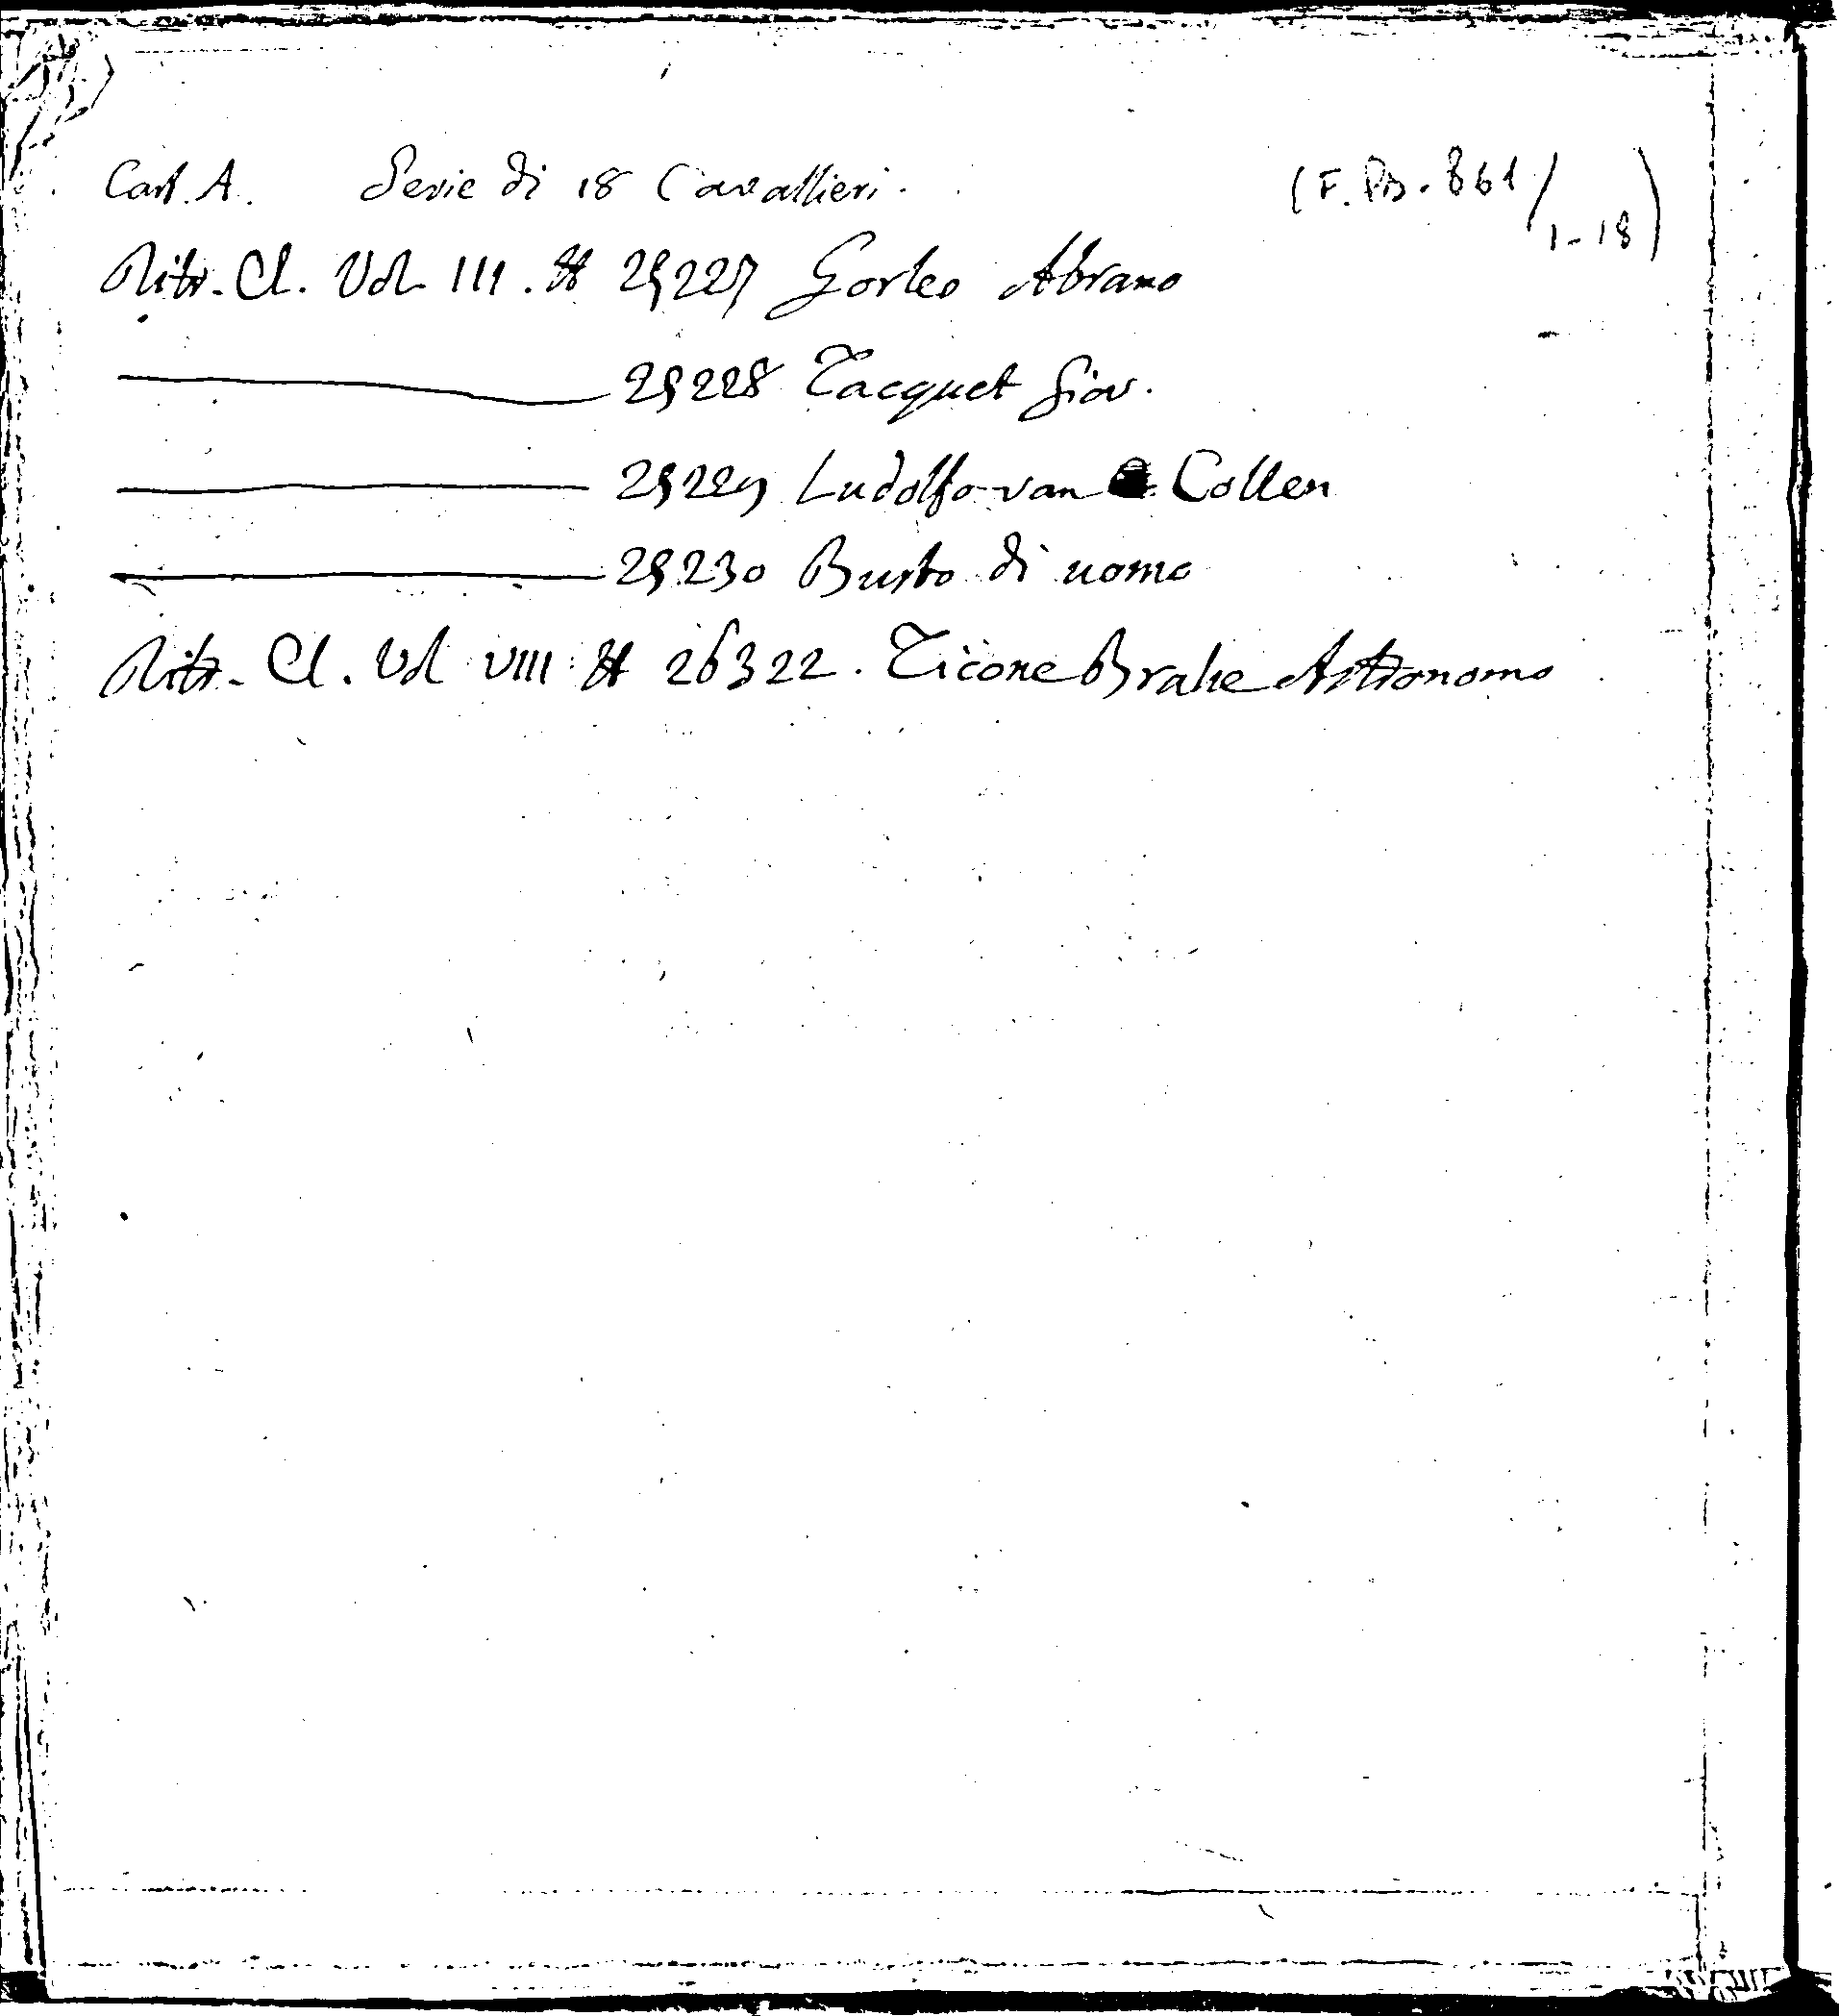 Cart. A. Serie di 18 Cavallieri. (F. PB. 861/1-18)
Ritr. Cl. Vol III. # 25227 Gorleo Abramo
25228 Tacquet Giov.
25229 Ludolfo van Collen
25230 Busto di uomo
Ritr. Cl. Vol VIII # 26322. Ticone Brahe Astronomo